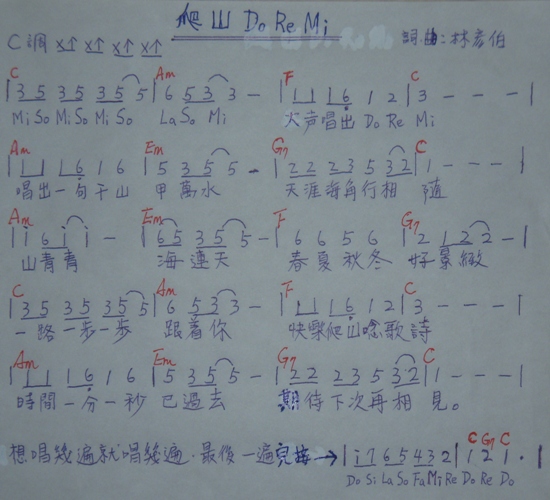 爬山 Do Re Mi
C調 X↑ X↑ X↑ X↑ 詞曲:林彥伯
C Am F C
|3 5 3 5 3 5 5|6 5 3 3 -|1 1 1 6 1 2|3 - - -|
Mi So Mi So Mi So La So Mi 大声唱出 Do Re Mi
Am Em G7 C
|1 1 1 6 1 6|5 3 5 5 -|2 2 2 3 5 3 2|1 - - -|
唱出一句千山 甲萬水 天涯海角行相 隨
Am Em F G7
|i 6 i i -|6 5 3 5 5 -|6 6 5 6|2 1 2 2 -|
山青青 海連天 春夏秋冬 好景緻
C Am F C
|3 5 3 5 3 5 5|6 5 3 3 -|1 1 1 6 1 2|3 - - -|
一路一步一步 跟着你 快樂爬山唸歌詩
Am Em G7 C
|1 1 1 6 1 6|5 3 5 5 -|2 2 2 3 5 3 2|1 - - -|
時間一分一秒 已過去 期待下次再相 見。
C G7 C
想唱幾遍就唱幾遍.最後一遍完接→|i 7 6 5 4 3 2|1 2 1 .|
Do Si La So Fa Mi Re Do Re Do